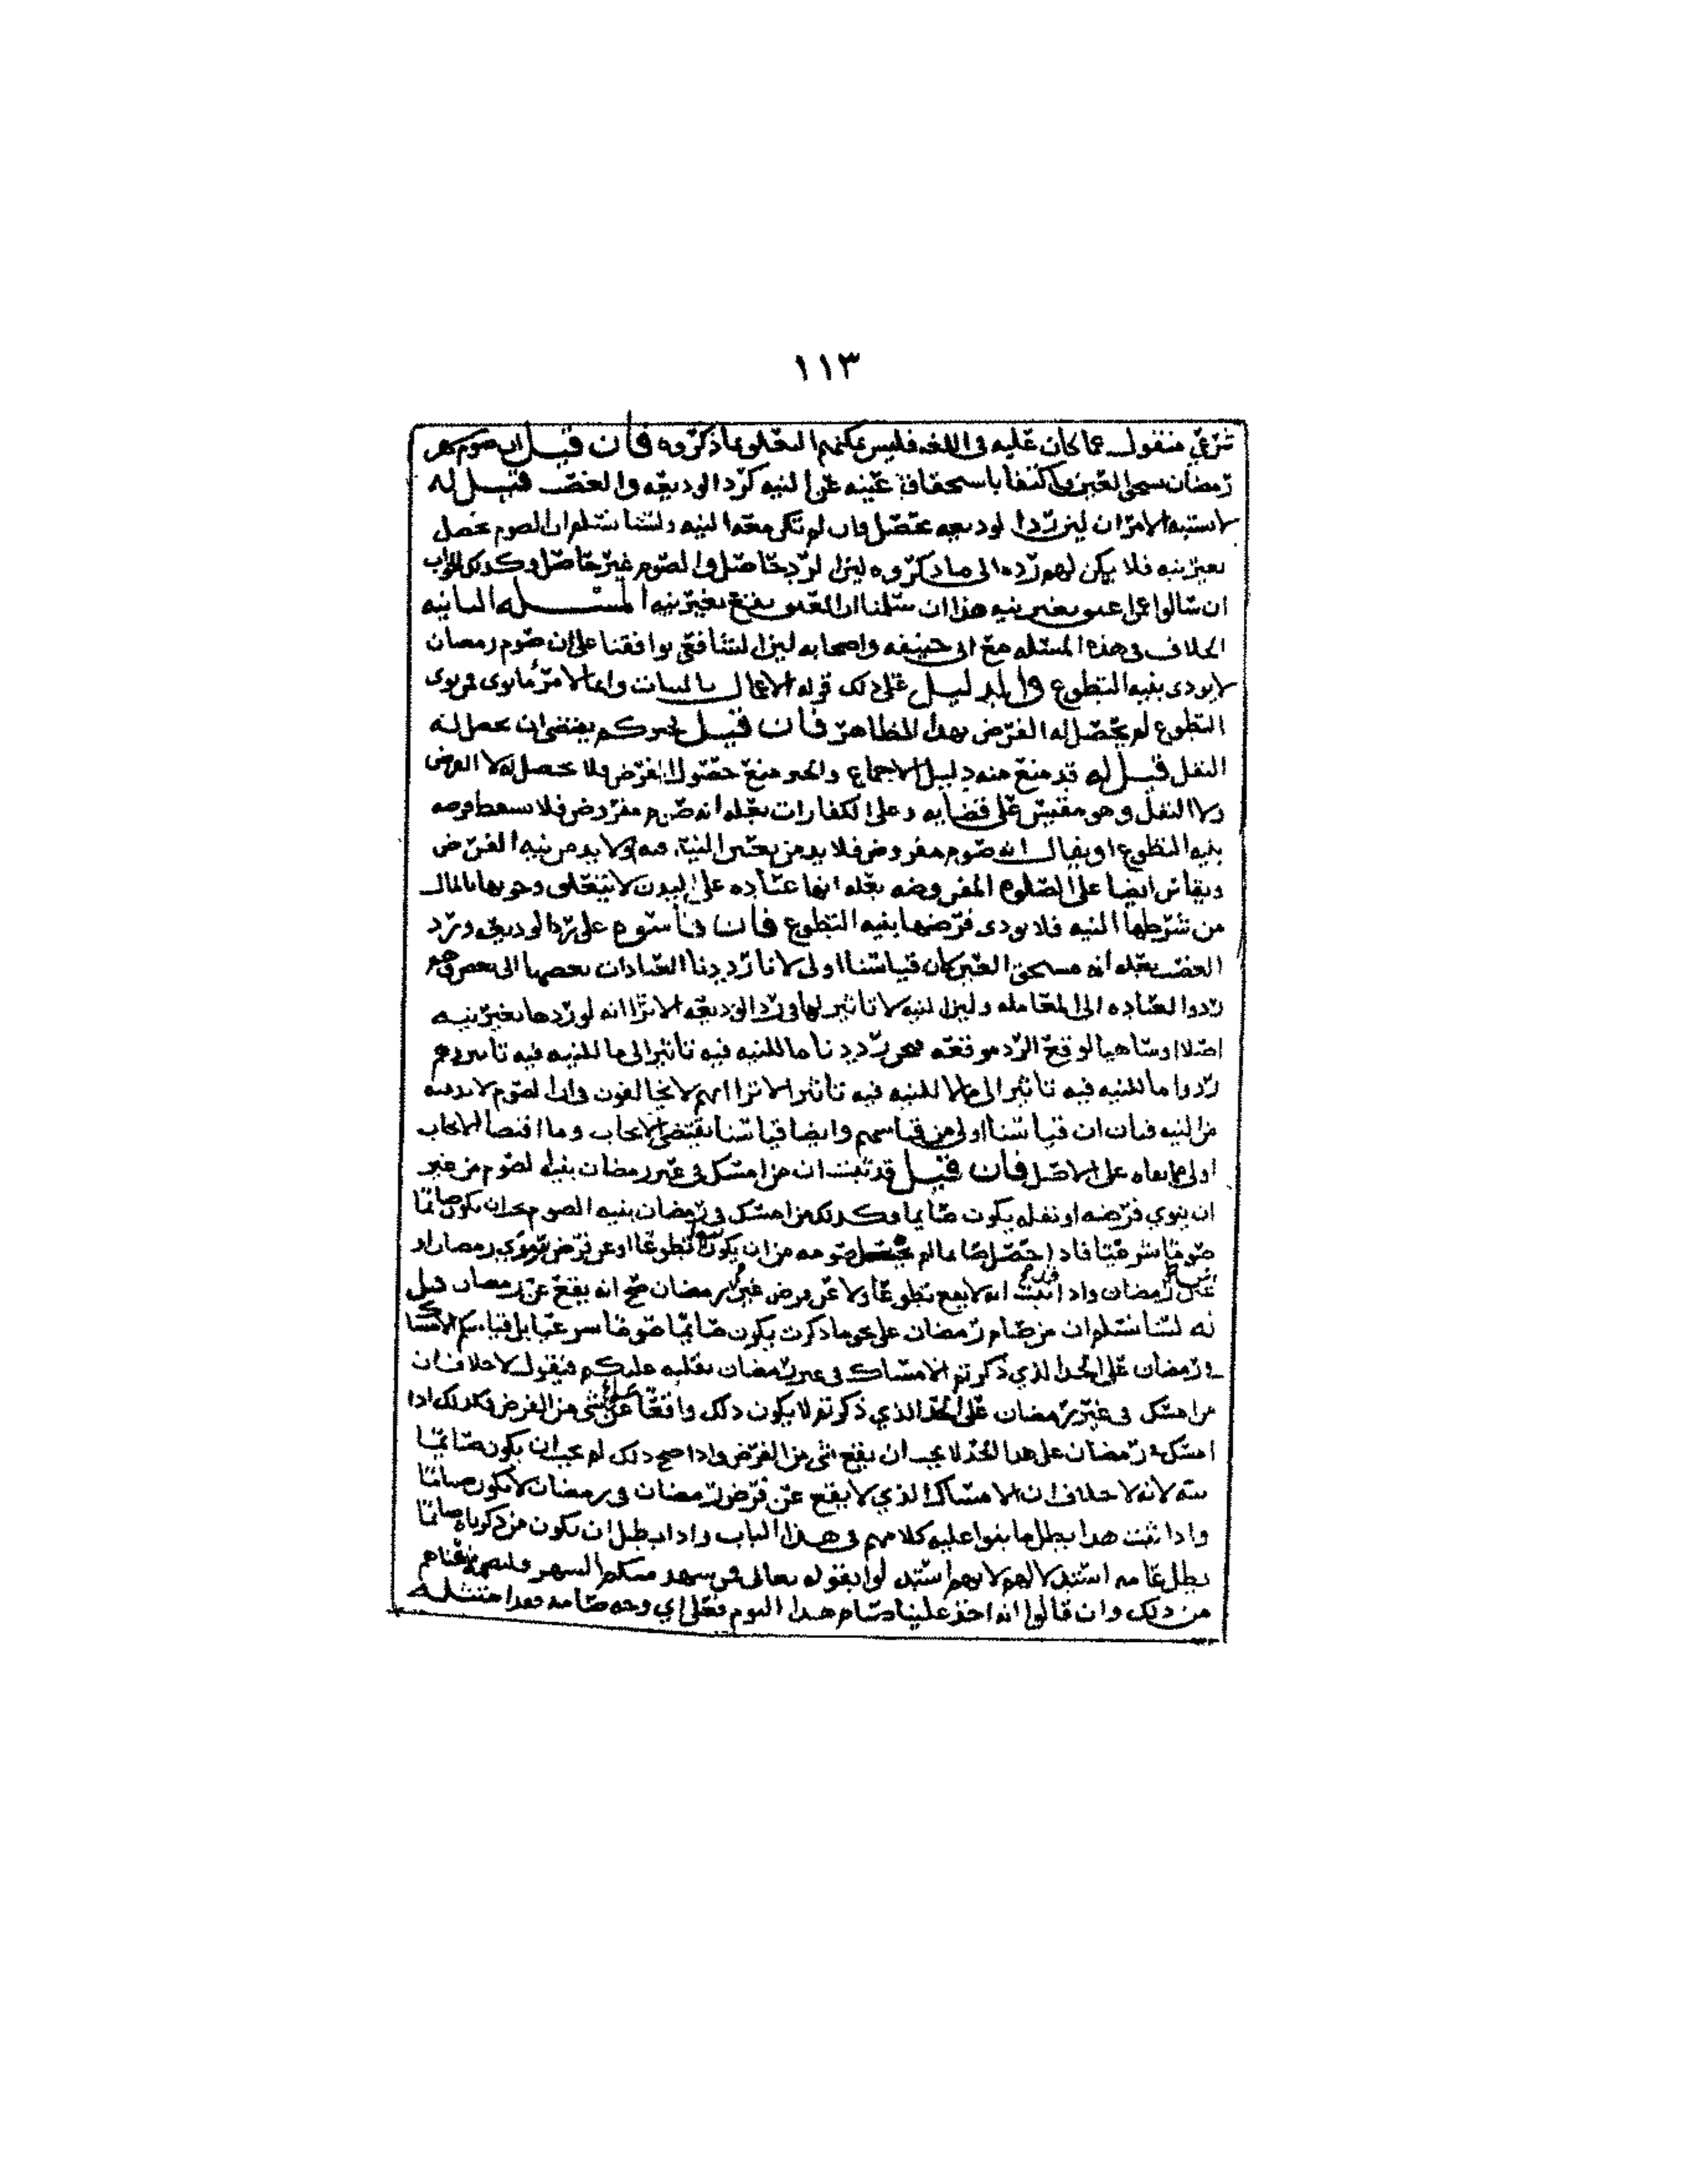 ١١٣
شرعي منقول عما كان عليه في اللغة فليس يمكنهم التعلق بما ذكروه فان قيل ان صوم شهر
رمضان مستحق العين فاكتفا باستحقاق عينه عن النيه كرد الوديعه والغصب قيل له
لا يشتبه الامران لان رد الوديعه يحصل وان لم تكن معه النيه ولسنا نسلم ان الصوم يحصل
بغير نيه فلا يمكن لهم رده الى ما ذكروه لان الرد حاصل والصوم غير حاصل وكذلك الجواب
ان سالوا عن العتق بغير نيه هذا ان سلمنا ان العتق يقع بغير نيه المسئله الثانيه
الخلاف في هذه المسئله مع ابي حنيفه واصحابه لان الشافعي يوافقنا على ان صوم رمضان
لا يودى بنيه التطوع والدليل على ذلك قوله الاعمال بالنيات وانما لامرء ما نوى فمن نوى
التطوع لم يحصل له الفرض بهذا الظاهر فان قيل خبركم يقتضي ان يحصل له
النفل قيل له قد منع منه دليل الاجماع والخبر منع حصول الفرض فلا يحصل له لا الفرض
ولا النفل وهو مقيس على قضايه وعلى الكفارات بعله انه صوم مفروض فلا يسقط فرضه
بنيه التطوع او يقال انه صوم مفروض فلا بد من تعيين النيه فيه ولا بد من نيه الفرض
ويقاس ايضا على الصلوه المفروضه بعله انها عباده على البدن لا يتعلق وجوبها بالمال
من شرطها النيه فلا يودى فرضها بنيه التطوع فان قاسوه على رد الوديعه ورد
الغصب بعله انه مستحق العين كان قياسنا اولى لانا رددنا العبادات بعضها الى بعض وهم
ردوا العباده الى المعامله ولان النيه لا تاثير لها في رد الوديعه الا ترا انه لو ردها بغير نيه
اصلا او ساهيا لوقع الرد موقعه فنحن رددنا ما للنيه فيه تاثير الى ما للنيه فيه تاثير وهم
ردوا ما للنيه فيه تاثير الى ما لا للنيه فيه تاثير الا ترا انهم لا يخالفون في ان الصوم لا بد فيه
من النيه فبان ان قياسنا اولى من قياسهم وايضا قياسنا يقتضي الايجاب وما اقتضا الايجاب
اولى مما بقاه على الاصل فان قيل قد ثبت ان من امسك في غير رمضان بنيه الصوم من غير
ان ينوي فرضه او نفله يكون صايما وكذلك من امسك في رمضان بنيه الصوم يجب ان يكون صائما
رمضان واذا ثبت انه لا يقع تطوعا ولا عن فرض غير رمضان صح انه يقع عن رمضان قيل
له لسنا نسلم ان من صام رمضان على نحو ما ذكرت يكون صائما صوما شرعيا بل قياسكم الامساك
في رمضان على الحد الذي ذكرتم الامساك في غير رمضان نقلبه عليكم فنقول لا خلاف ان
من امسك في غير رمضان على الحد الذي ذكرتم لا يكون ذلك واقعا عن شي من الفرض فكذلك اذا
امسك في رمضان على هذا الحد لا يجب ان يقع عن شي من الفرض واذا صح ذلك لم يجب ان يكون صائما
لانه لا خلاف ان الامساك الذي لا يقع عن فرض رمضان في رمضان لا يكون صائما
واذا ثبت هذا بطل ما بنوا عليه كلامهم في هذا الباب واذا بطل ان يكون من ذكرناه صائما
بطل عامه استدلالهم لانهم استدلوا بقوله تعالى فمن شهد منكم الشهر فليصمه
من ذلك وان قالوا انه اخذ علينا صيام هذا اليوم فعلى اي وجه صامه فقد امتثله